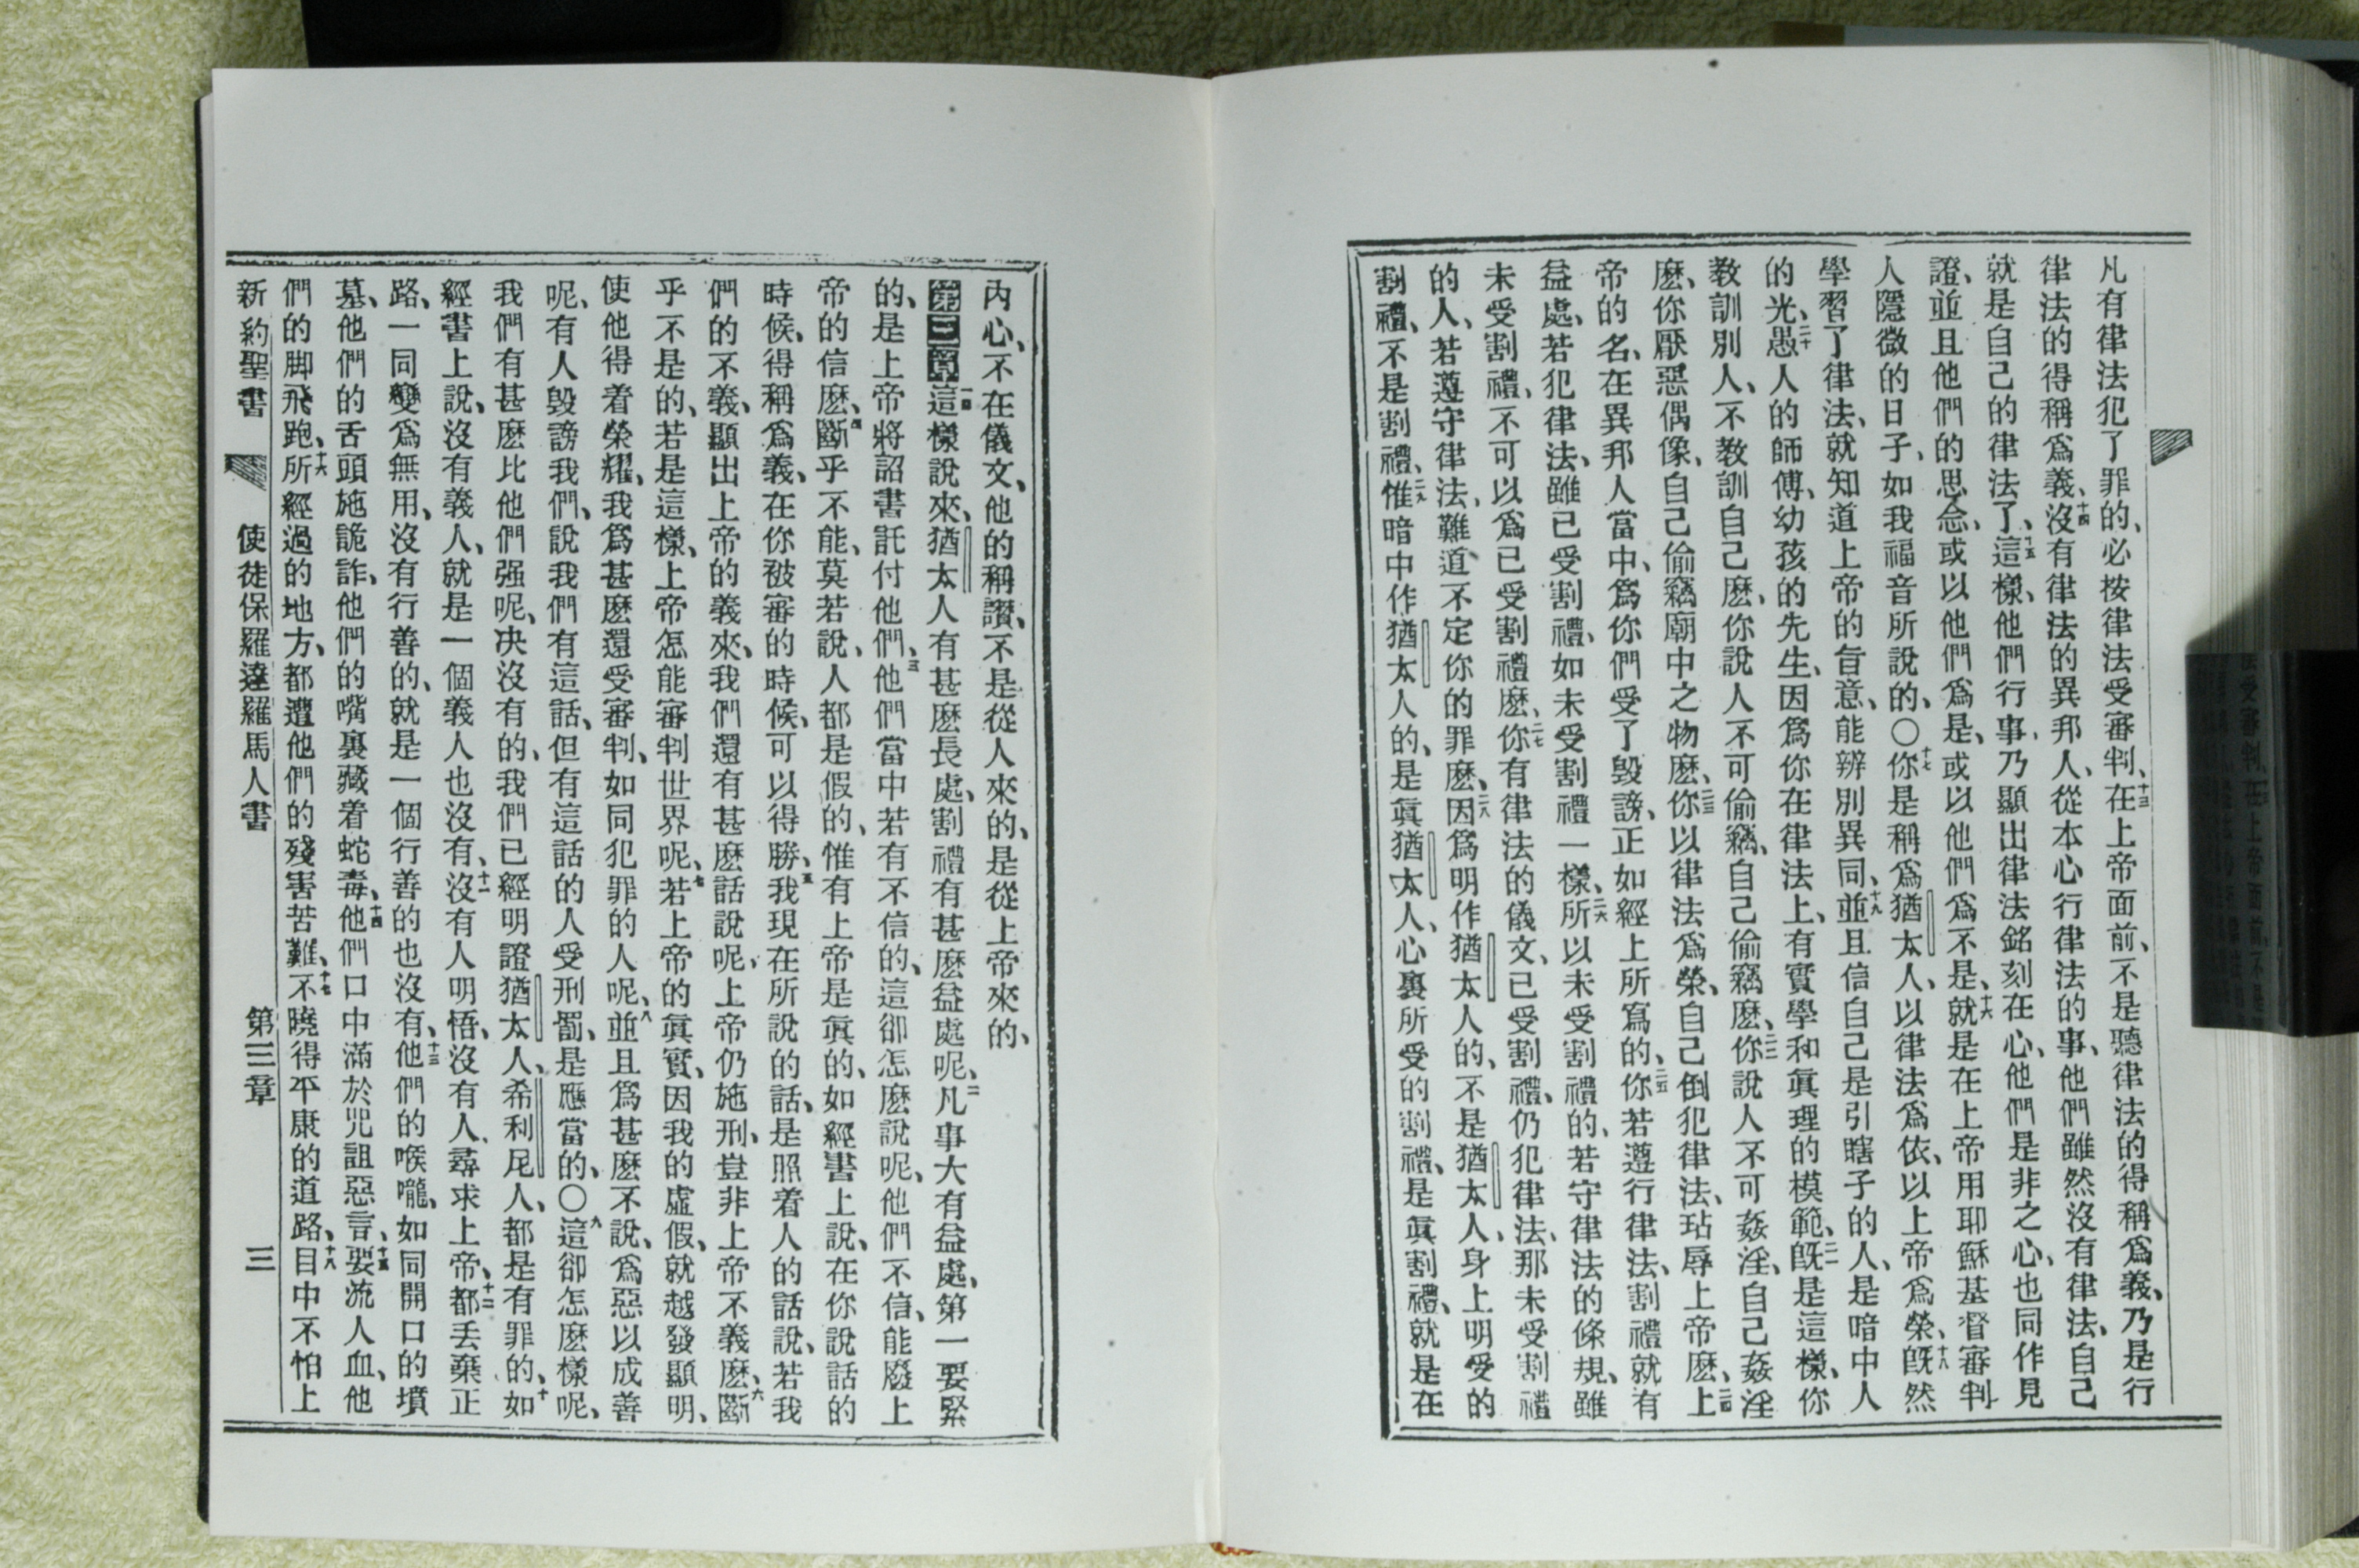 凡有律法犯了罪的、必按律法受審判、十三在上帝面前、不是聽律法的得稱爲義、乃是行
律法的得稱爲義、十四沒有律法的異邦人、從本心行律法的事、他們雖然沒有律法、自己
就是自己的律法了、十五這樣、他們行事、乃顯出律法銘刻在心、他們是非之心、也同作見
證、並且他們的思念、或以他們爲是、或以他們爲不是、十六就是在上帝用耶穌基督審判
人隱微的日子、如我福音所說的、〇十七你是稱爲猶太人、以律法爲依、以上帝爲榮、十八旣然
學習了律法、就知道上帝的旨意、能辨別異同、十九並且信自己是引瞎子的人、是暗中人
的光、二十愚人的師傅、幼孩的先生、因爲你在律法上、有實學和眞理的模範、二一旣是這樣、你
教訓別人、不教訓自己麽、你說人不可偷竊、自己偷竊麽、二二你說人不可姦淫、自己姦淫
麽、你厭惡偶像、自己偷竊廟中之物麽、二三你以律法爲榮、自己倒犯律法、玷辱上帝麽、二四上
帝的名、在異邦人當中、爲你們受了毀謗、正如經上所寫的、二五你若遵行律法、割禮就有
益處、若犯律法、雖已受割禮、如未受割禮一樣、二六所以未受割禮的、若守律法的條規、雖
未受割禮、不可以爲已受割禮麽、二七你有律法的儀文、已受割禮、仍犯律法、那未受割禮
的人、若遵守律法、難道不定你的罪麽、二八因爲明作猶太人的、不是猶太人、身上明受的
割禮、不是割禮、二九惟暗中作猶太人的、是眞猶太人、心裏所受的割禮、是眞割禮、就是在
內心、不在儀文、他的稱讚、不是從人來的、是從上帝來的、
第三章一這樣說來、猶太人有甚麽長處、割禮有甚麽益處呢、二凡事大有益處、第一要緊
的、是上帝將詔書託付他們、三他們當中若有不信的、這卻怎麽說呢、他們不信、能廢上
帝的信麽、四斷乎不能、莫若說、人都是假的、惟有上帝是眞的、如經書上說、在你說話的
時候、得稱爲義、在你被審的時候、可以得勝、五我現在所說的話、是照着人的話說、若我
們的不義、顯出上帝的義來、我們還有甚麽話說呢、上帝仍施刑、豈非上帝不義麽、六斷
乎不是的、若是這樣、上帝怎能審判世界呢、七若上帝的眞實、因我的虛假、就越發顯明、
使他得着榮耀、我爲甚麽還受審判、如同犯罪的人呢、八並且爲甚麽不說、爲惡以成善
呢、有人毀謗我們、說我們有這話、但有這話的人受刑罰、是應當的、〇九這卻怎麽樣呢、
我們有甚麽比他們强呢、决沒有的、我們已經明證猶太人、希利尼人、都是有罪的、十如
經書上說、沒有義人、就是一個義人也沒有、十一沒有人明悟、沒有人尋求上帝、十二都丟棄正
路、一同變爲無用、沒有行善的、就是一個行善的也沒有、十三他們的喉嚨、如同開口的墳
墓、他們的舌頭施詭詐、他們的嘴裏藏着蛇毒、十四他們口中滿於咒詛惡言、十五要流人血、他
們的脚飛跑、十六所經過的地方、都遭他們的殘害苦難、十七不曉得平康的道路、十八目中不怕上
新約聖書 使徒保羅達羅馬人書 第三章 三